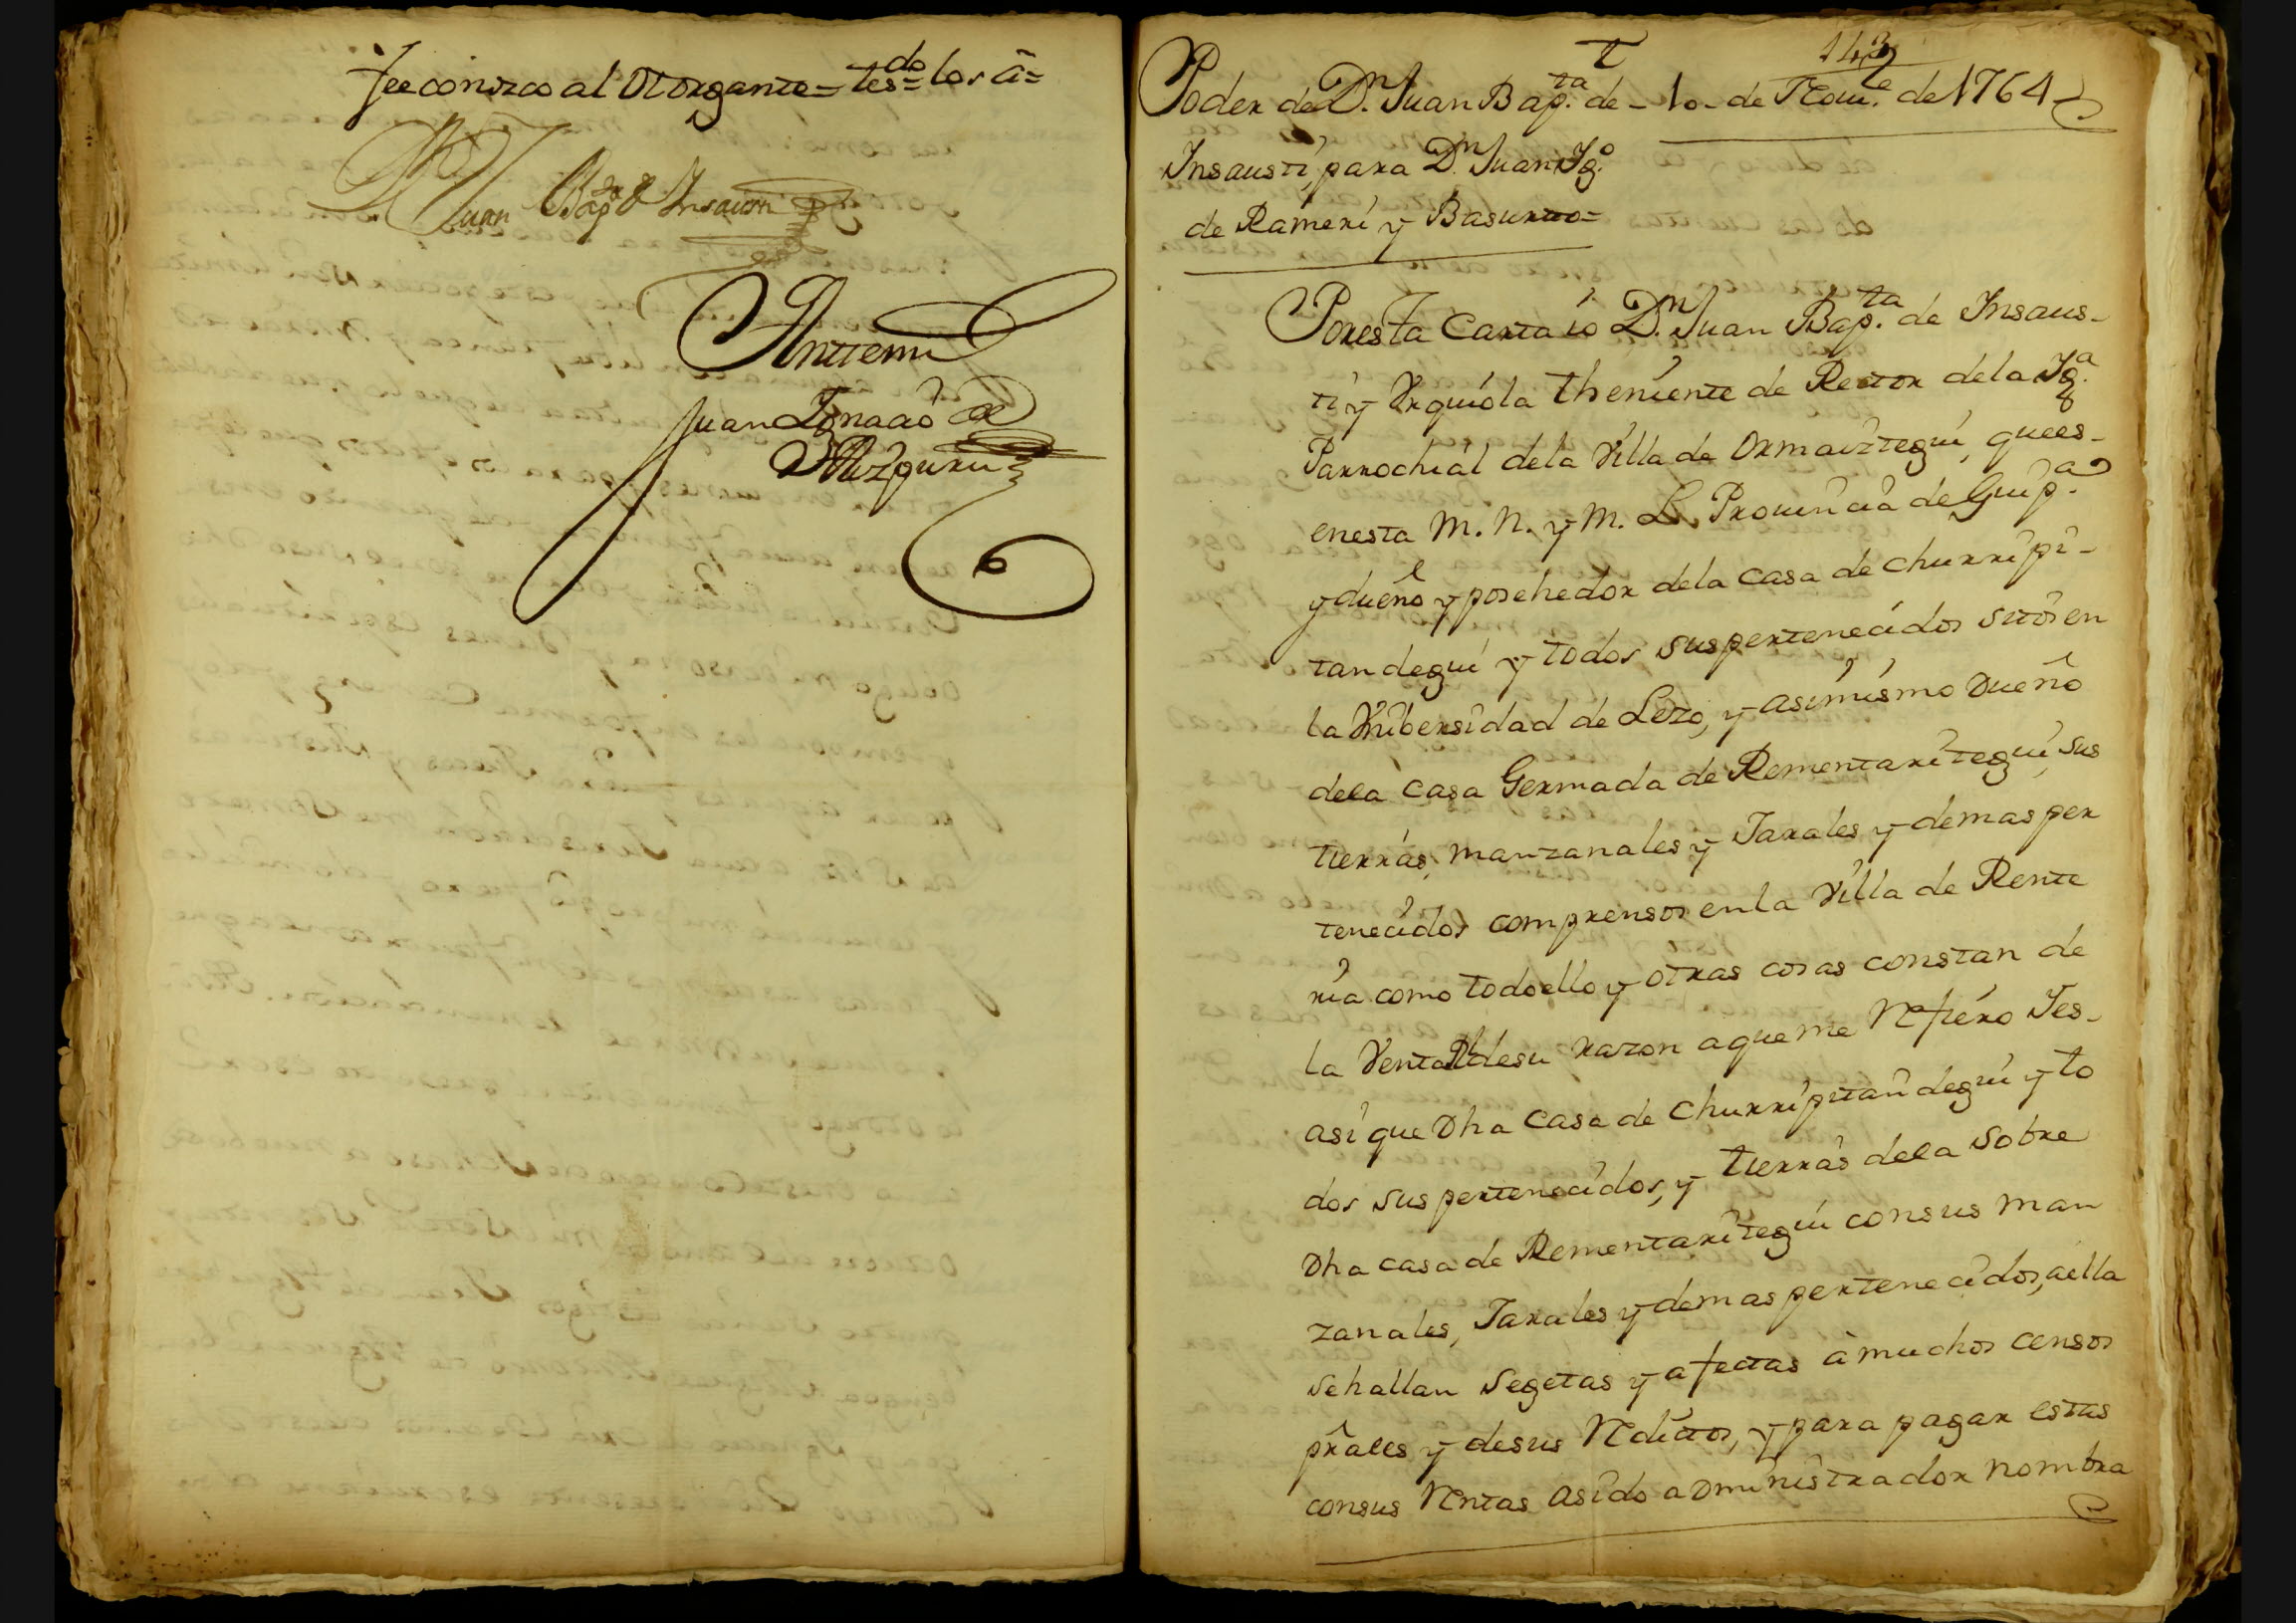 fee conozco al Otorgante = tesdo = los a =
Juan Bapta Insausti
Antte mi
Juan Ignacio de
Aizpuru
T
143
Poder de Dn. Juan Bap.ta de - 10 - de Nou.e de 1764
Insausti, para Dn. Juan Ig.o
de Rameri y Basurto =
Por esta Carta io Dn. Juan Bap.ta de Insaus-
ti y Vrquiola theniente de Rector dela Ig.a
Parrochial dela Villa de Ormaiztegui, que es-
en esta M. N. y M. L. Prouincia de Guip.a
y dueño y posehedor dela casa de churripi-
tandegui y todos sus pertenecidos sitos en
la Vnibersidad de Lezo, y asimismo Dueño
dela casa Germada de Rementaritegui, sus
tierras, manzanales y Jarales y demas per
tenecidos comprensos en la Villa de Rente
ria como todo ello y otras cosas constan de
la Venta Rl de su razon a que me Refiero Jes-
asi que Dha Casa de Churripitandegui y to
dos sus pertenecidos, y tierras dela Sobre
Dha casa de Rementaritegui con sus man
zanales, Jarales y demas pertenecidos, aella
se hallan segetas y afectas à muchos censos
prales y de sus Reditos, y para pagar estas
con sus Rentas asido administrador nombra